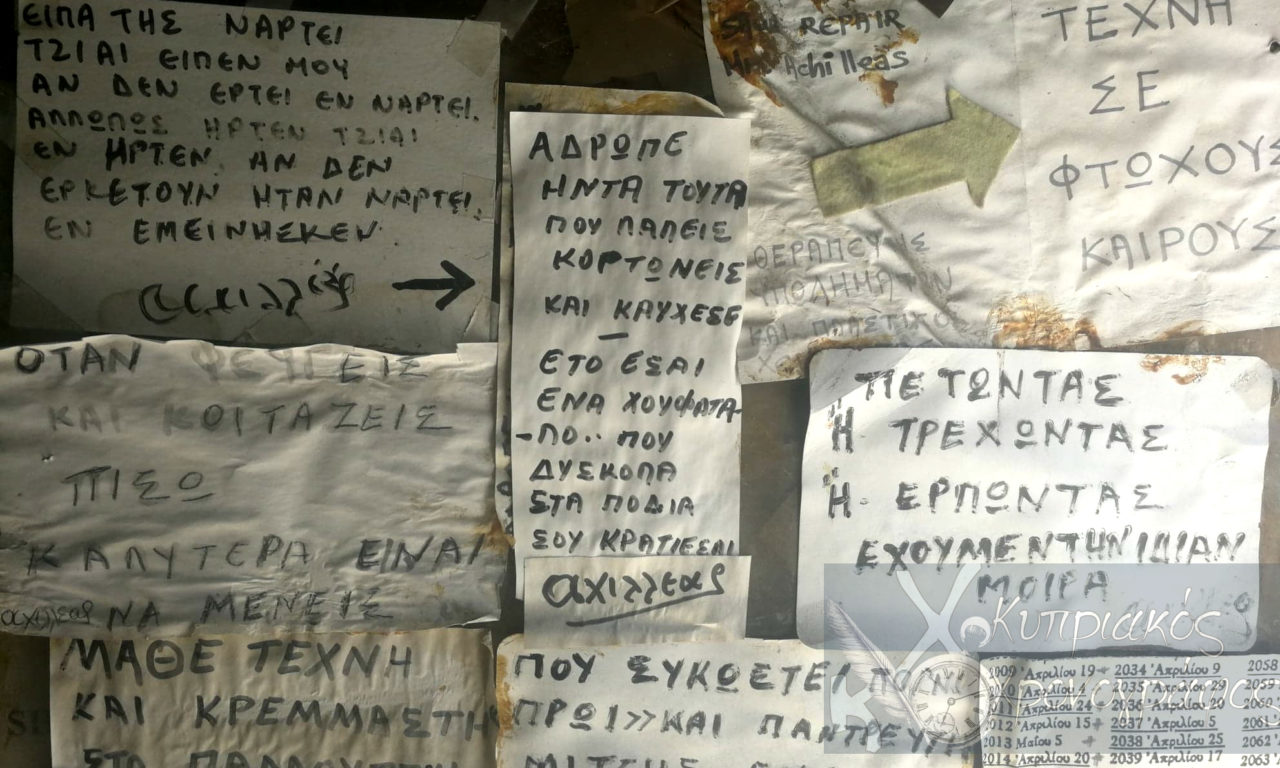 ΕΙΠΑ ΤΗΣ ΝΑΡΤΕΙ
ΤΖΙΑΙ ΕΙΠΕΝ ΜΟΥ
ΑΝ ΔΕΝ ΕΡΤΕΙ ΕΝ ΝΑΡΤΕΙ.
ΑΛΛΩΠΩΣ ΗΡΤΕΝ ΤΖΙΑΙ
ΕΝ ΗΡΤΕΝ. ΑΝ ΔΕΝ
ΕΡΚΕΤΟΥΝ ΗΤΑΝ ΝΑΡΤΕΙ.
ΕΝ ΕΜΕΙΝΗΣΚΕΝ.
ΑΔΡΩΠΕ
ΗΝΤΑ ΤΟΥΤΑ
ΠΟΥ ΠΑΠΕΙΣ
ΚΟΡΤΩΝΕΙΣ
ΚΑΙ ΚΑΥΧΕΣΕ
ΕΤΟ ΕΣΑΙ
ΕΝΑ ΧΟΥΦΑΤΑ-
-ΠΟ.. ΠΟΥ
ΔΥΣΚΟΠΑ
ΣΤΑ ΠΟΔΙΑ
ΣΟΥ ΚΡΑΤΙΕΣΑΙ
αχιλλεας
REPAIR
Achilleas
ΤΕΧΝΗ
ΣΕ
ΦΤΩΧΟΥΣ
ΚΑΙΡΟΥΣ
ΥΠΟΔΗΜΑΤΩΝ
ΚΑΙ
ΟΤΑΝ ΦΕΥΓΕΙΣ
ΚΑΙ ΚΟΙΤΑΖΕΙΣ
ΠΙΣΩ
ΚΑΛΥΤΕΡΑ ΕΙΝΑΙ
αχιλλεας ΝΑ ΜΕΝΕΙΣ
ΠΕΤΩΝΤΑΣ
Ή ΤΡΕΧΩΝΤΑΣ
Ή ΕΡΠΩΝΤΑΣ
ΕΧΟΥΜΕΝ ΤΗΝ ΙΔΙΑΝ
ΜΟΙΡΑ
Κυπριακός
ΜΑΘΕ ΤΕΧΝΗ
ΚΑΙ ΚΡΕΜΜΑΣΤΗΝ
ΣΤΟ
ΠΟΥ ΣΥΚΩΕΤΕΙ
ΠΡΩΙ>> ΚΑΙ ΠΑΝΤΡΕΥΤΗ
2009 Ἀπριλίου 19 2034 Ἀπριλίου 9 2058
2010 Ἀπριλίου 4 2035 Ἀπριλίου 29 2059
2011 Ἀπριλίου 24 2036 Ἀπριλίου 20 2060
2012 Ἀπριλίου 15 2037 Ἀπριλίου 5 2061
2013 Μαΐου 5 2038 Ἀπριλίου 25 2062
2014 Ἀπριλίου 20 2039 Ἀπριλίου 17 2063